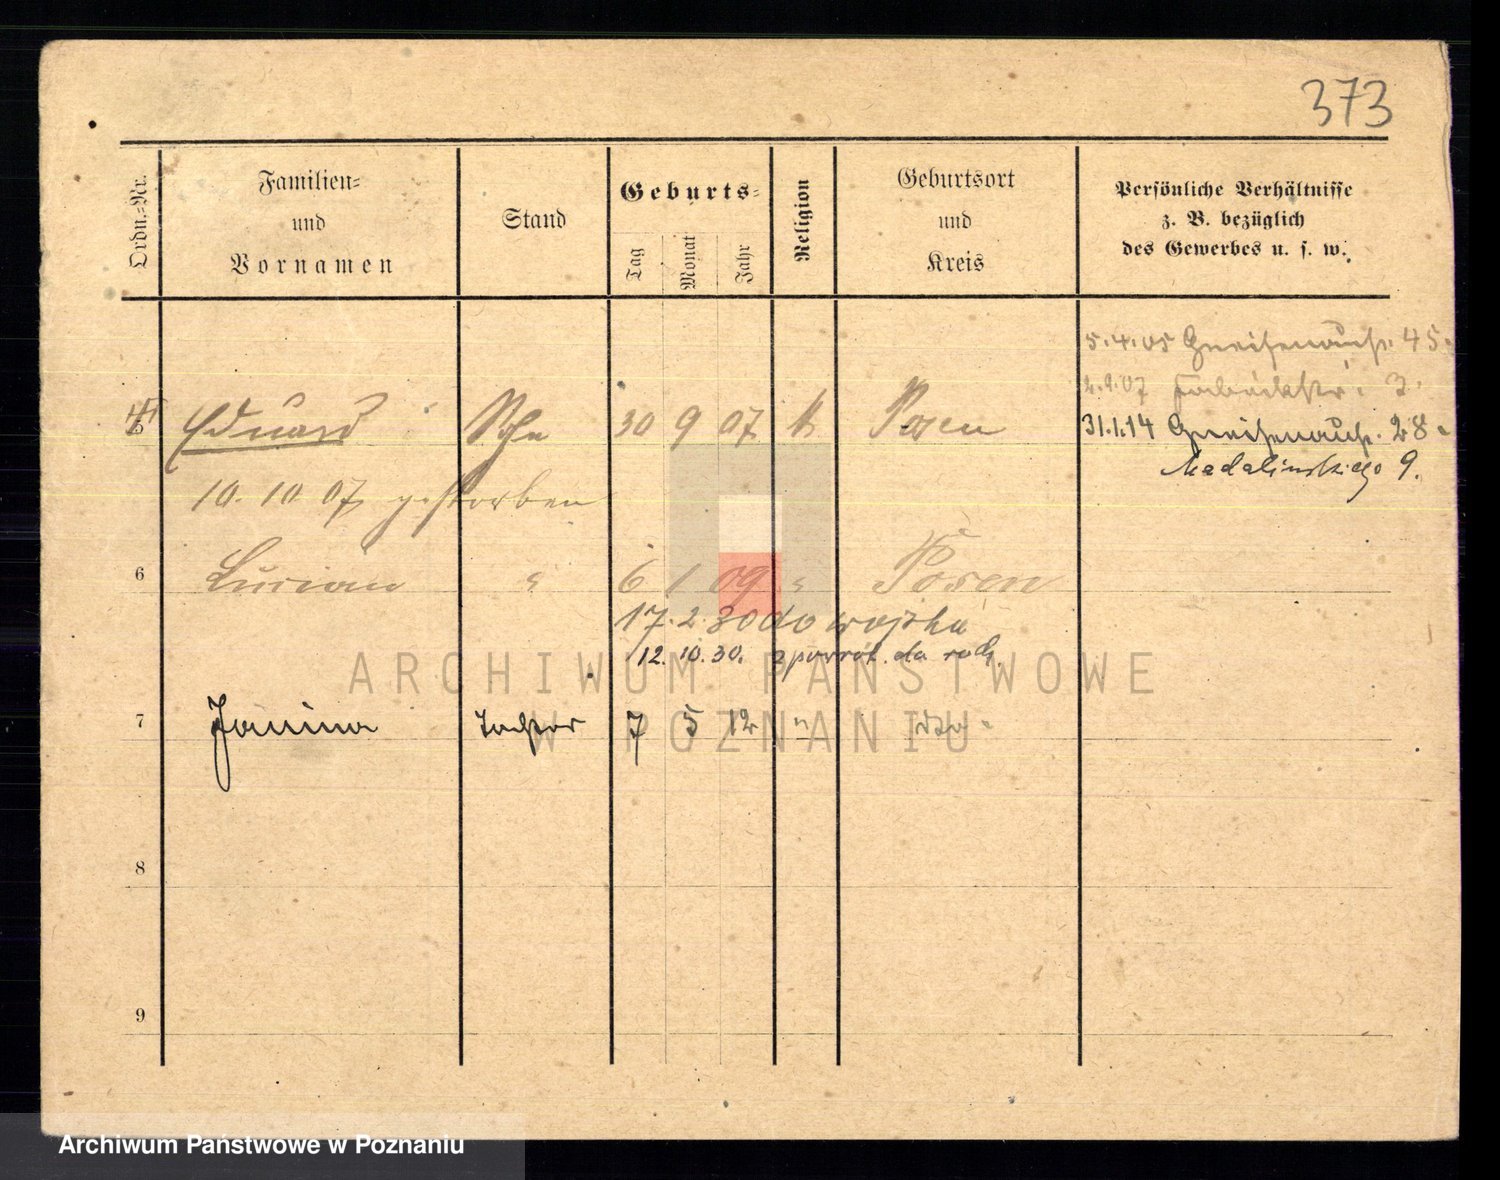 373
Ordn.-Nr.
Familien-
und
Vornamen
Stand
Geburts-
Tag Monat Jahr
Religion
Geburtsort
und
Kreis
Persönliche Verhältnisse
z. B. bezüglich
des Gewerbes u. s. w.
5.4.05 Gneisenaustr. 45.
2.9.07 3.
31.1.14 Gneisenaustr. 28.
Madalinskiego 9.
5 Eduard Sohn 30 9 07 k Posen
10. 10 07 gestorben
6 Lucian " 6 1 09 " Posen
17. 2. 30 do wojska
12. 10. 30. z powrót. do rodz.
7 Janina Tochter 7 5 12 "
8
9
ARCHIWUM PAŃSTWOWE
W POZNANIU
Archiwum Państwowe w Poznaniu